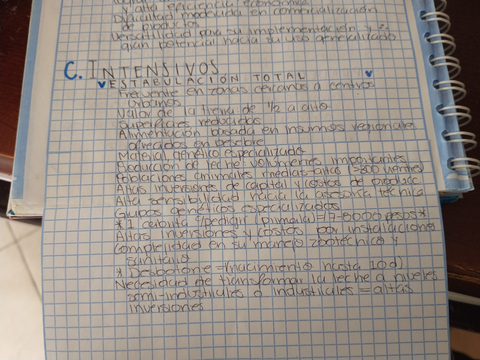 eficiencia económica
Dificultad moderada en comercialización
de producto
Versatilidad para su implementación y es
gran potencial hacia su uso generalizado
C. INTENSIVOS
ESTABULACIÓN TOTAL
Frecuente en zonas cercanas a centros
urbanos
Valor de la tierra de 1/2 a alto
Superficies reducidas
Alimentación basada en insumos regionales
ofrecidos en pesebre
Material genético especializado
Producción de leche volúmenes importantes
Poblaciones animales medias-altas
Altas inversiones de capital y costos de producc
Alta sensibilidad hacia la asesoría técnica
Grupos genéticos especializados
* 1 cubata
Altas inversiones y costos por instalaciones
Complejidad en su manejo zootécnico y
sanitario
* Desbotone = (nacimiento hasta 10 d)
Necesidad de transformar la leche a niveles
semi-industriales o industriales = altas
inversiones